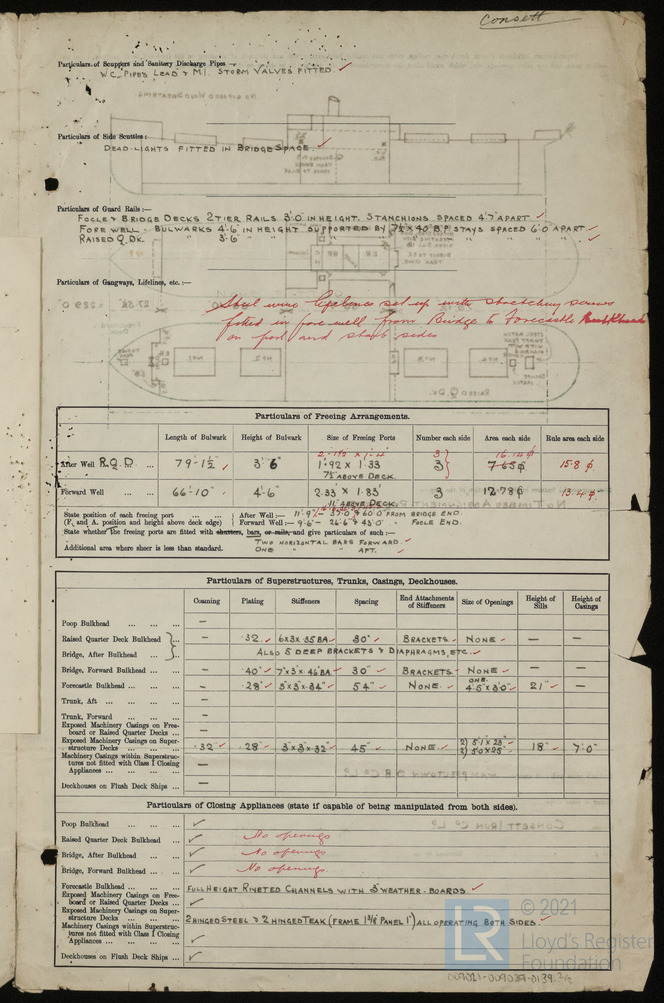 Consett
Particulars of Scuppers and Sanitary Discharge Pipes
W.C. PIPES LEAD & M.I. STORM VALVES FITTED.
Particulars of Side Scuttles:
DEAD-LIGHTS FITTED IN BRIDGE SPACE.
Particulars of Guard Rails:—
FOCLE & BRIDGE DECKS 2 TIER RAILS 3'0" IN HEIGHT. STANCHIONS SPACED 4'7" APART.
FORE WELL - BULWARKS 4'6" IN HEIGHT SUPPORTED BY 7½ x 40 B.P STAYS SPACED 6'0" APART.
RAISED Q. DK. " 3'6" " " " " " " "
Particulars of Gangways, Lifelines, etc.:—
Steel wire lifelines set up with stretching screws
fitted in fore well from Bridge to Forecastle Bulkhead
on port and starb sides
Particulars of Freeing Arrangements.
Length of Bulwark Height of Bulwark Size of Freeing Ports Number each side Area each side Rule area each side
After Well R.Q.D. ... 79'-1½" 3'6" 1'92 x 1.33 3 7.65 16.10 15.8
7½" ABOVE DECK.
Forward Well ... 66'-10" 4'-6" 2.33 x 1.83' 3 12.78 13.4
11" ABOVE DECK.
State position of each freeing port ... ... After Well:— 11'-9" 37'0" & 60'0" FROM BRIDGE END.
(F, and A. position and height above deck edge) Forward Well:— 9'-6" - 26'6" & 43'0" " FOCLE END.
State whether the freeing ports are fitted with shutters, bars, or rails, and give particulars of such:—
TWO HORIZONTAL BARS FORWARD.
Additional area where sheer is less than standard. ONE " " AFT.
Particulars of Superstructures, Trunks, Casings, Deckhouses.
Coaming Plating Stiffeners Spacing End Attachments of Stiffeners Size of Openings Height of Sills Height of Casings
Poop Bulkhead ... ... ... —
Raised Quarter Deck Bulkhead ... — .32 6x3x.35 BA 30" BRACKETS NONE — —
Bridge, After Bulkhead ... ... ALSO 5 DEEP BRACKETS & DIAPHRAGMS, ETC.
Bridge, Forward Bulkhead ... ... — .40" 7"x3"x.46 BA 30" BRACKETS NONE —
Forecastle Bulkhead ... ... ... — .28" 3"x3"x.34" 54" NONE. ONE 4'5x3'0" 21" —
Trunk, Aft ... ... ... —
Trunk, Forward ... ... ... —
Exposed Machinery Casings on Free-
board or Raised Quarter Decks ... —
Exposed Machinery Casings on Super-
structure Decks ... ... ... .32" .28" 3"x3"x.32" 45" NONE. 2) 5'1"x23" 2) 5'0"x25" 18" 7'0"
Machinery Casings within Superstruc-
tures not fitted with Class I Closing
Appliances ... ... ... —
Deckhouses on Flush Deck Ships ... —
Particulars of Closing Appliances (state if capable of being manipulated from both sides).
Poop Bulkhead ... ... ... ✓
Raised Quarter Deck Bulkhead ... ✓ No openings
Bridge, After Bulkhead ... ... ✓ No openings
Bridge, Forward Bulkhead ... ... ✓ No openings.
Forecastle Bulkhead ... ... ... FULL HEIGHT RIVETED CHANNELS WITH 3" WEATHER-BOARDS
Exposed Machinery Casings on Free-
board or Raised Quarter Decks ... ✓
Exposed Machinery Casings on Super-
structure Decks ... ... ... 2 HINGED STEEL & 2 HINGED TEAK (FRAME 1⅜" PANEL 1") ALL OPERATING BOTH SIDES.
Machinery Casings within Superstruc-
tures not fitted with Class I Closing
Appliances ... ... ... ✓
Deckhouses on Flush Deck Ships ... ✓
© 2021
LR
Lloyd's Register
Foundation
009021-009039-0139 2/2